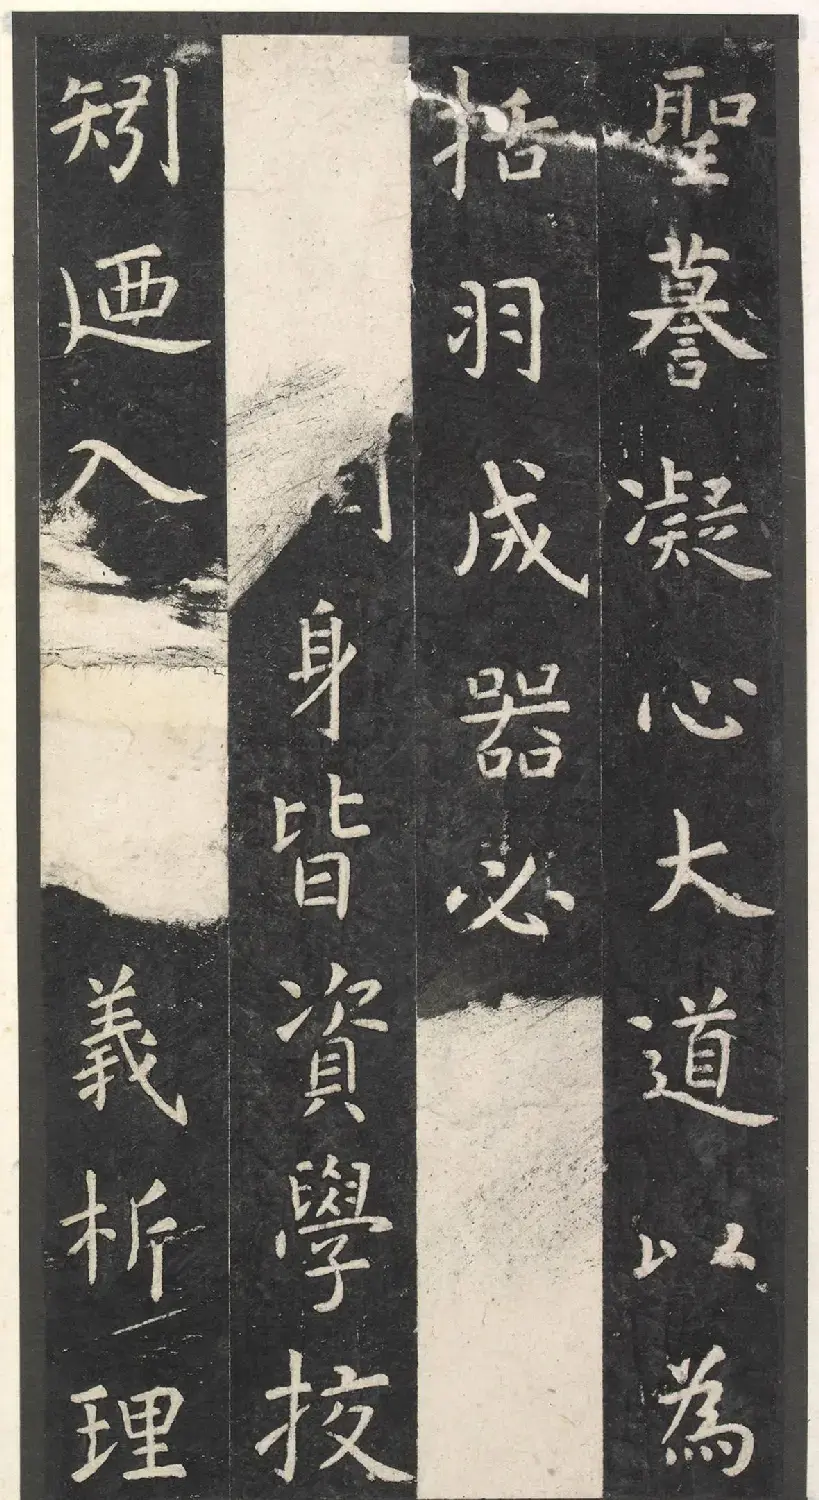 聖謩凝心大道以為
括羽成器必
身皆資學挍
矧迺入義析理